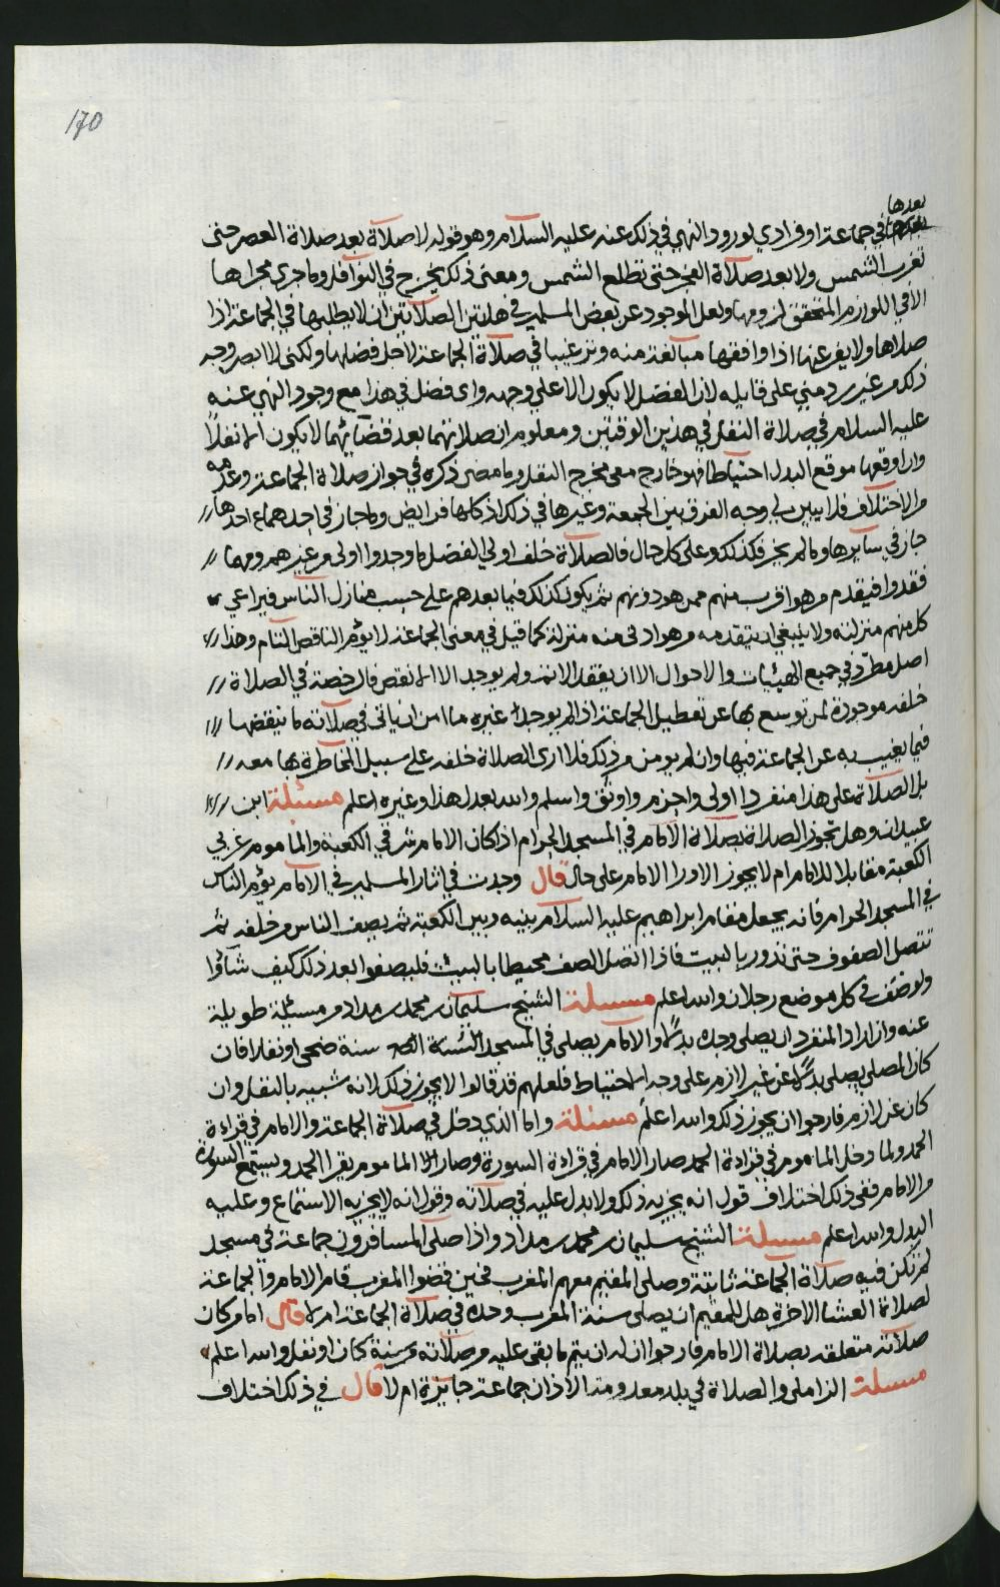 170
بعدها
في جماعة او فرادي لورود النهي في ذلك عنه عليه السلام وهو قوله لا صلاة بعد صلاة العصر حتى
تغرب الشمس ولا بعد صلاة الفجر حتى تطلع الشمس ومعنى ذلك يخرج في النوافل وما جرى مجراها
لا في اللوازم المتحقق لزومها ولعل الموجود عن بعض المسلمين في هاتين الصلاتين ان لا يطلبها في الجماعة اذا
صلاها ولا يفر عنها اذا وافقها مبالغة منه وترغيبا في صلاة الجماعة لاجل فضلها ولكني لا ابصر وجه
ذلك من غير رد مني على قايله لان الفضل لا يكون الا على وجهه واي فضل في هذا مع وجود النهي عنه
عليه السلام في صلاة النفل في هذين الوقتين ومعلوم ان صلاتهما بعد قضائهما لا يكون الا نفلا
وان اوقعها موقع البدل احتياطا فهو خارج معي مخرج النفل وما مضى ذكره في جواز صلاة الجماعة وعدمه
من الاختلاف فلا يبين لي وجه الفرق بين الجمعة وغيرها في ذلك اذ كلها فرايض وما جاز في احدها
جاز في سايرها وما لم يجز فكذلك وعلى كل حال فالصلاة خلف اولي الفضل ما وجدوا اولى من غيرهم ومهما
فقدوا فيقدم من هو اقرب منهم ممن هو دونهم ثم يكون كذلك فيما بعدهم على حسب منازل الناس فيراعي
كل منهم منزلته ولا ينبغي ان يتقدمه من هو ادنى منه منزلة كما قيل في معنى الجماعة لا يؤم الناقص التام وهذا
اصل مطرد في جميع الهيئات والاحوال الا ان يفقد الاتم ولم يوجد الا الانقص فالرخصة في الصلاة
خلفه موجودة لمن توسع بها عن تعطيل الجماعة اذا لم يوجد غيره ما امن ان ياتي في صلاته ما ينقضها
فيما يغيب به عن الجماعة فيها وان لم يومن من ذلك فلا ارى الصلاة خلفه على سبيل المخاطرة بها معه
بل الصلاة على هذا منفردا اولى واحزم واوثق واسلم والله بعدل هذا وغيره اعلم مسئلة ابن
عبيدان وهل تجوز الصلاة بصلاة الامام في المسجد الحرام اذا كان الامام شرقي الكعبة والماموم غربي
الكعبة مقابلا للامام ام لا يجوز الا ورا الامام على حال قال وجدت في اثار المسلمين في الامام يؤم الناس
في المسجد الحرام فانه يجعل مقام ابراهيم عليه السلام بينه وبين الكعبة ثم يصف الناس من خلفه ثم
تتصل الصفوف حتى تدور بالبيت فاذا اتصل الصف محيطا بالبيت فليصفوا بعد ذلك كيف شاؤا
ولو صف في كل موضع رجلان والله اعلم مسئلة الشيخ سليمان بن محمد بن مداد من مسئلة طويلة
عنه وان اراد المنفرد ان يصلى وحده بدلا والامام يصلى في المسجد سنة ضحى او نفلا فان
كان المصلي يصلى بدلا عن غير لازم على وجه الاحتياط فلعلهم قد قالوا لا يجوز ذلك لانه شبيه بالنفل وان
كان عن لازم فارجوا ان يجوز ذلك والله اعلم مسئلة واما الذي دخل في صلاة الجماعة والامام في قراءة
الحمد ولما دخل الماموم في قراءة الحمد صار الامام في قراءة السورة وصار الماموم يقرا الحمد ويستمع السورة
من الامام ففي ذلك اختلاف قول انه يجزيه ذلك ولا بدل عليه في صلاته وقول انه لا يجزيه الاستماع وعليه
البدل والله اعلم مسئلة الشيخ سليمان بن محمد بن مداد واذا صلى المسافرون جماعة في مسجد
لم تكن فيه صلاة الجماعة ثابتة وصلى المقيم معهم المغرب فحين قضوا المغرب قام الامام والجماعة
لصلاة العشا الاخرة هل للمقيم ان يصلى سنة المغرب وحده في صلاة الجماعة ام لا قال اما من كان
صلاته متعلقه بصلاة الامام فارجوا ان له ان يتم ما بقي عليه من صلاته من سنة كان او نفل والله اعلم
مسئلة الزاملي والصلاة في بلد معدومة الاذان جماعة جايزة ام لا قال في ذلك اختلاف